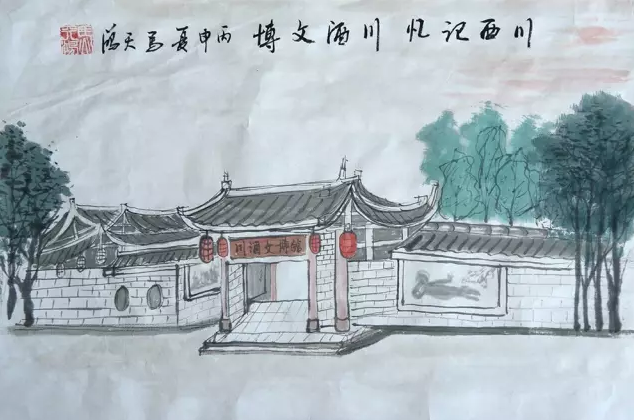 川西记忆 川酒文博 丙申夏 马天
川酒文博馆